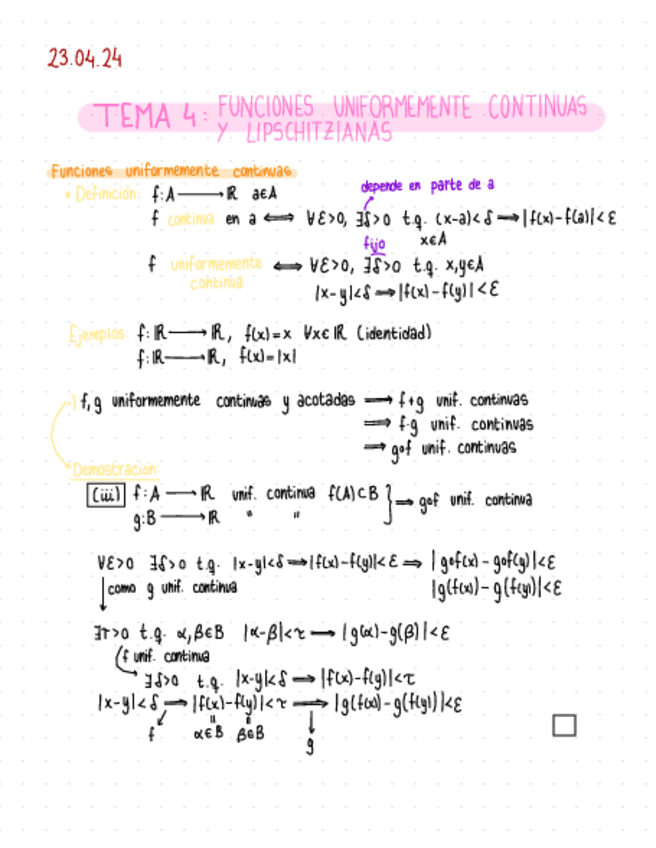 23.04.24
TEMA 4: FUNCIONES UNIFORMEMENTE CONTINUAS
Y LIPSCHITZIANAS
Funciones uniformemente continuas
• Definición: f: A ⟶ ℝ a∈A
depende en parte de a
f continua en a ⟺ ∀ε>0, ∃δ>0 t.q. (x-a)<δ ⟹ |f(x)-f(a)|<ε
fijo x∈A
f uniformemente continua ⟺ ∀ε>0, ∃δ>0 t.q. x,y∈A
|x-y|<δ ⟹ |f(x)-f(y)|<ε
Ejemplos: f: ℝ ⟶ ℝ, f(x)=x ∀x∈ℝ (identidad)
f: ℝ ⟶ ℝ, f(x)=|x|
·) f,g uniformemente continuas y acotadas ⟹ f+g unif. continuas
⟹ f·g unif. continuas
⟹ g∘f unif. continuas
Demostración:
(iii) f: A ⟶ ℝ unif. continua f(A)⊂B } ⟹ g∘f unif. continua
g: B ⟶ ℝ " "
∀ε>0 ∃δ>0 t.q. |x-y|<δ ⟹ |f(x)-f(y)|<ε ⟹ |g∘f(x) - g∘f(y)|<ε
como g unif. continua |g(f(x))-g(f(y))|<ε
∃τ>0 t.q. α,β∈B |α-β|<τ ⟶ |g(α)-g(β)|<ε
f unif. continua
∃δ>0 t.q. |x-y|<δ ⟹ |f(x)-f(y)|<τ
|x-y|<δ ⟹ |f(x)-f(y)|<τ ⟹ |g(f(x))-g(f(y))|<ε
f α∈B β∈B g